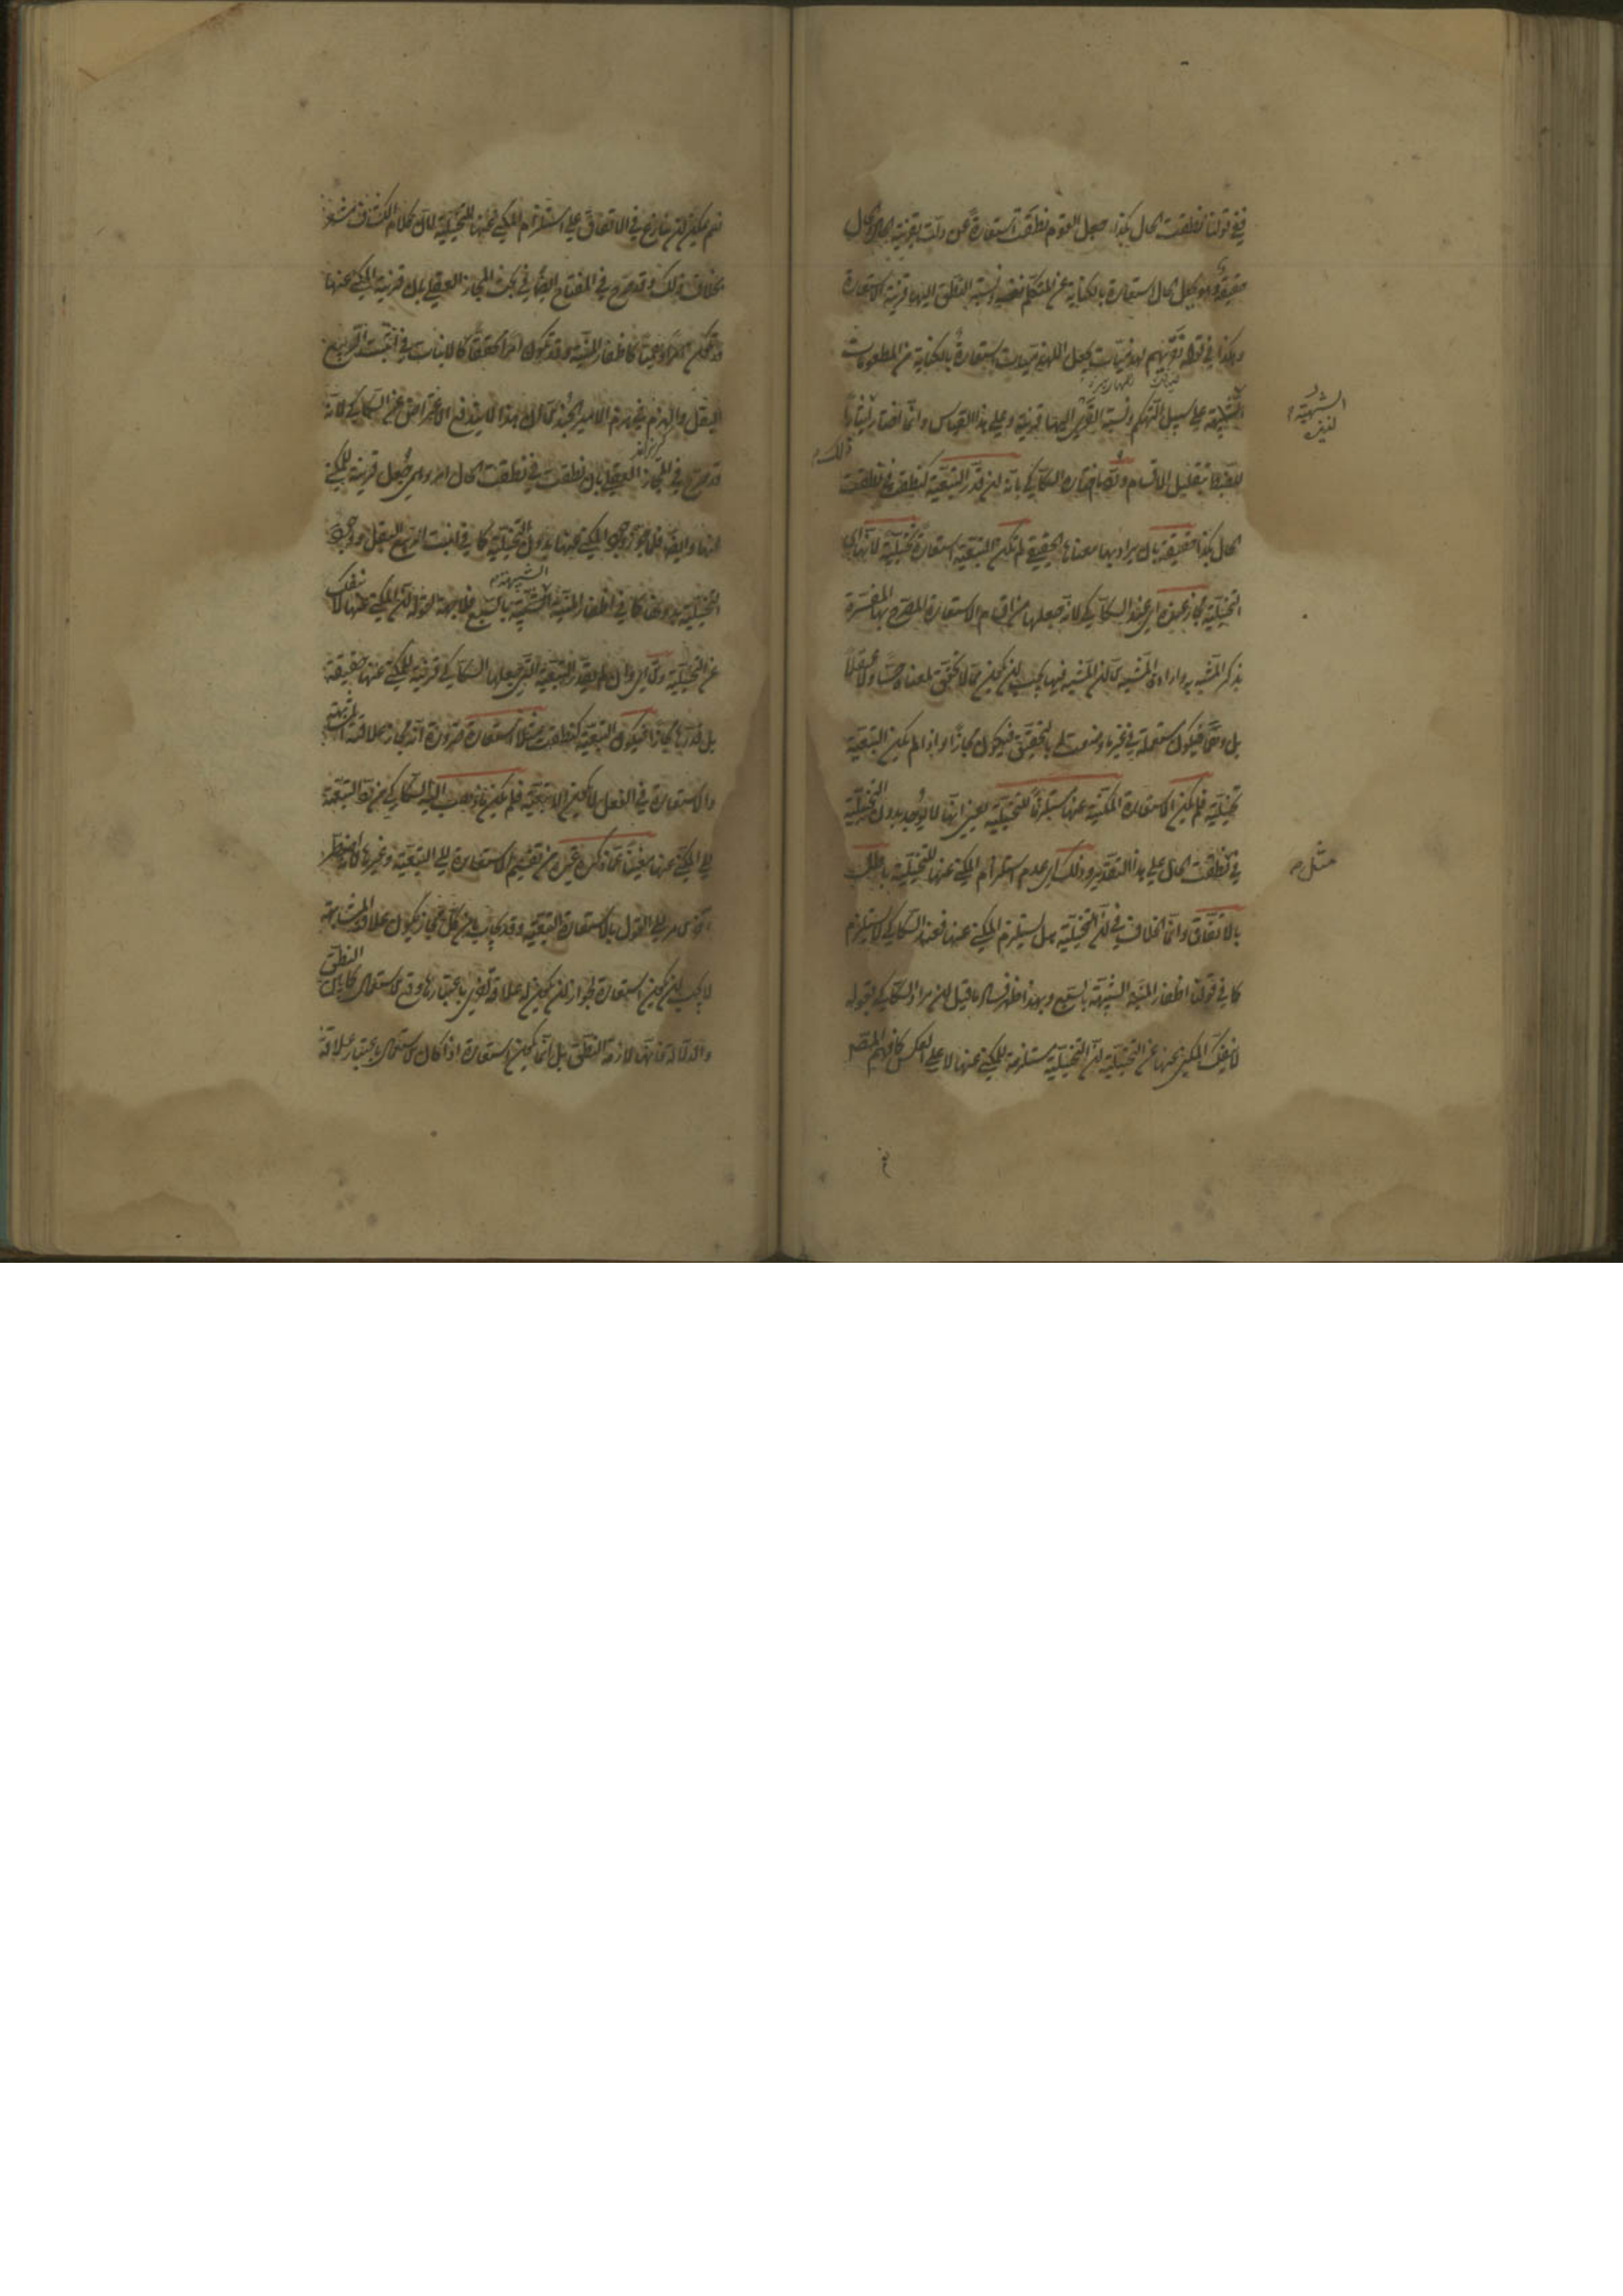 ففي قولنا نطقت الحال بكذا جعل القوم نطقت استعارة عن دلت بقرينة الحال والحال
حقيقة وهو يجعل الحال استعارة بالكناية عن المتكلم ونسبة النطق اليها قرينة الاستعارة
وهكذا في قوله نقريهم لهذميات يجعل اللهذميات استعارة بالكناية عن المطعومات
على سبيل التهكم ونسبة القرى اليها قرينة وعلى هذا القياس وانما اختار ذلك
ايثارا للضبط وتقليل الاقسام ورد ما اختاره السكاكي بانه ان قدر التبعية كنطقت في نطقت
الحال بكذا حقيقة بان يراد بها معناها الحقيقي لم تكن التبعية استعارة تخييلية لانها اي
التخييلية مجاز عنده اي عند السكاكي لانه جعلها من اقسام الاستعارة المصرح بها المفسرة
بذكر المشبه به وارادة المشبه الا ان المشبه فيها يجب ان يكون مما لا تحقق لمعناه حسا ولا عقلا
بل وهما فيكون مستعملة في غير ما وضعت له بالتحقيق فيكون مجازا واذا لم يكن التبعية
تخييلية فلم يكن الاستعارة المكنية عنها مستلزمة للتخييلية بمعنى انها لا توجد بدون التخييلية
في نطقت الحال على هذا التقدير وذلك اي عدم استلزام المكني عنها للتخييلية باطل
بالاتفاق وانما الخلاف في ان التخييلية هل يستلزم المكني عنها فعند السكاكي لا يستلزم
كما في قولنا اظفار المنية الشبيهة بالسبع وبهذا ظهر فساد ما قيل ان مراد السكاكي بقوله
لا ينفك المكني عنها عن التخييلية ان التخييلية مستلزمة للمكني عنها لا على العكس كما فهم المصنف
الشبهية
مثل
نعم يمكن ان ينازع في الاتفاق على استلزام المكني عنها للتخييلية لان كلام الكشاف مشعر
بخلاف ذلك وقد صرح في المفتاح ايضا في بحث المجاز العقلي بان قرينة المكني عنها
قد تكون امرا وهميا كاظفار المنية وقد تكون امرا محققا كالانبات في انبت الربيع
البقل والهزم في هزم الامير الجند الا ان هذا لا يدفع الاعتراض عن السكاكي لانه
قد صرح في المجاز العقلي بان نطقت في نطقت الحال امر وهمي جعل قرينة للمكني
عنها وايضا فلما جوز وجود المكني عنها بدون التخييلية كما في انبت الربيع البقل ووجود
التخييلية بدونها كما في اظفار المنية الشبيهة بالسبع فلا جهة لقوله ان المكني عنها لا ينفك
عن التخييلية والا اي وان لم يقدر التبعية التي جعلها السكاكي قرينة المكني عنها حقيقة
بل قدرها مجازا فيكون التبعية كنطقت مثلا استعارة ضرورة انه مجاز علاقته المشابهة
والاستعارة في الفعل لا يكون الا تبعية فلم يكن ما ذهب اليه السكاكي من رد التبعية
الى المكني عنها مغنيا عما ذكره غيره من تقسيم الاستعارة الى التبعية وغيرها لانه اضطر
آخر الامر الى القول بالاستعارة التبعية وقد يجاب بان كل مجاز يكون علاقته المشابهة
لا يجب ان يكون استعارة لجواز ان يكون له علاقة اخرى باعتبارها وقع الاستعمال كما بين النطق
والدلالة فانها لازمة للنطق بل انما يكون استعارة اذا كان الاستعمال باعتبار علاقة